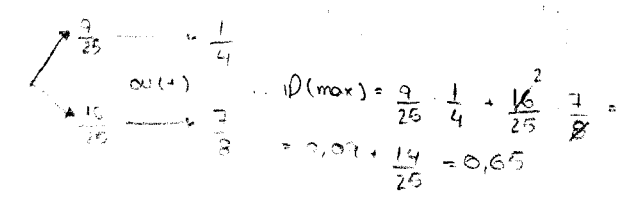 9/25 → 1/4
ou (+)
16/25 → 7/8
P(max) = 9/25 · 1/4 + 16/25 · 7/8 =
2
= 0,09 + 14/25 = 0,65